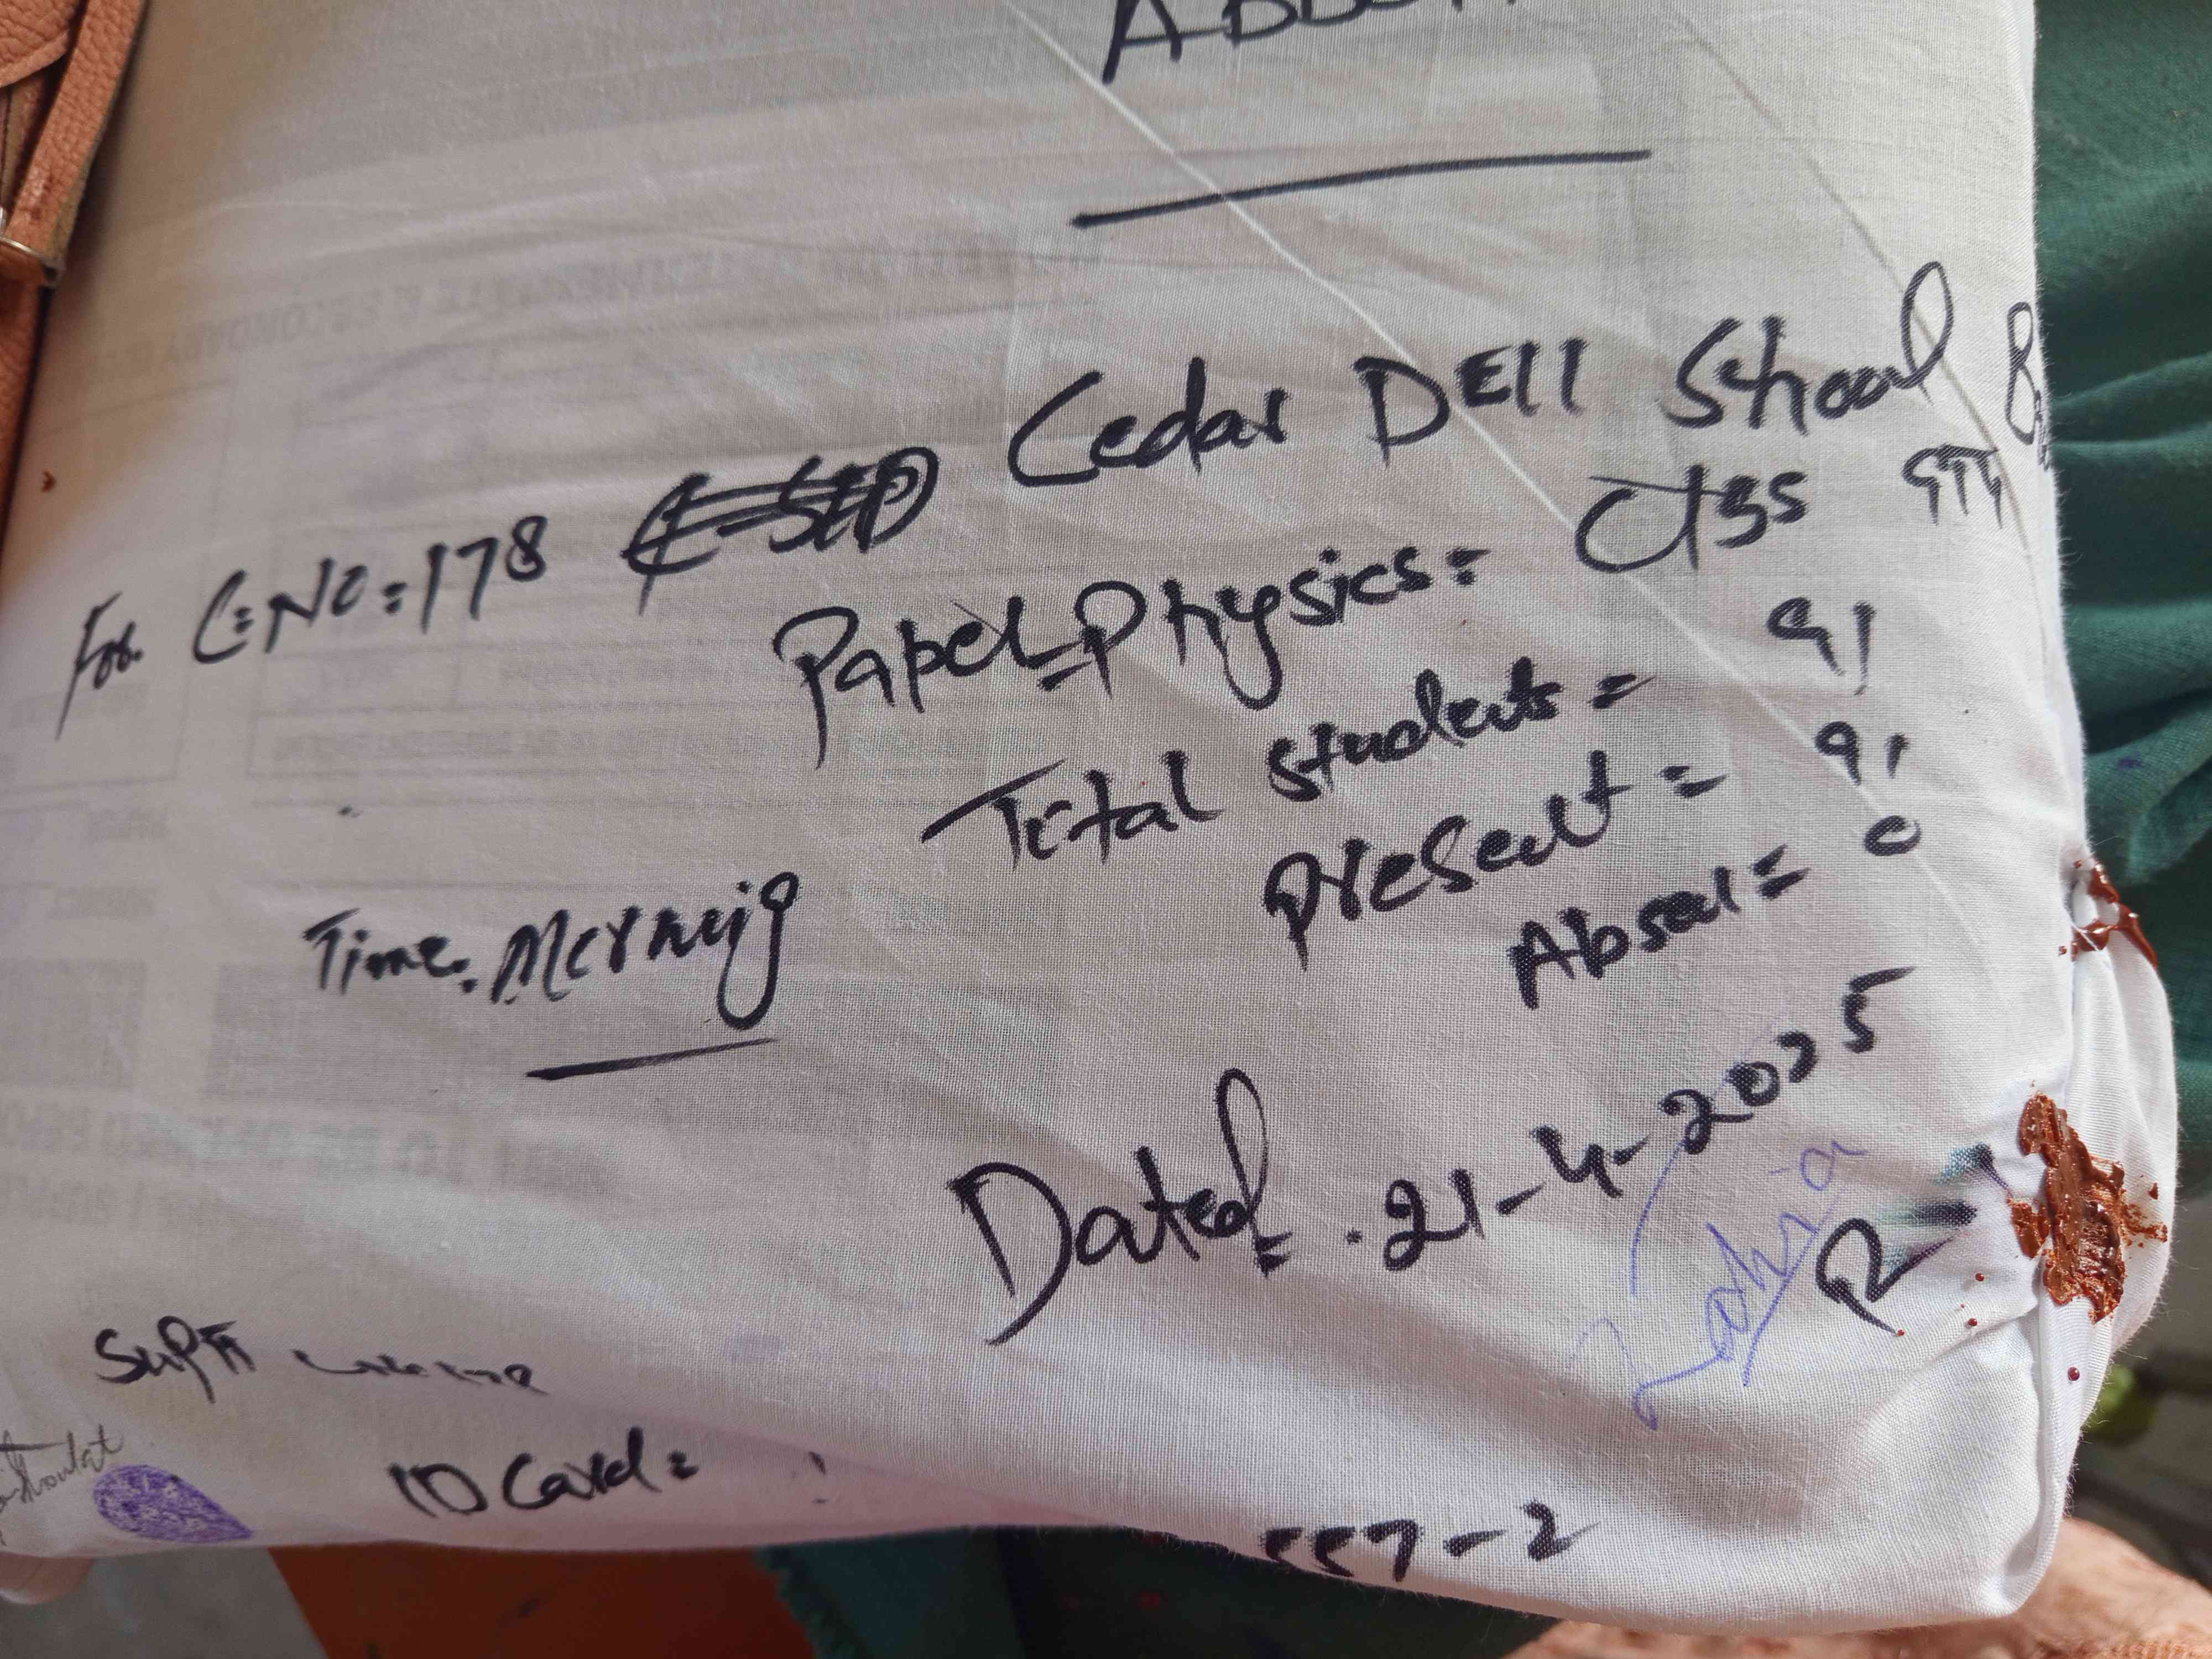 For C.NO=178 Cedar DEll School
Paper=Physics= Class 9th
Total students= 91
Present= 91
Absent= 0
Time. Morning
Dated= .21-4-2025
Zakia
Suptt
ID Card=
557-2